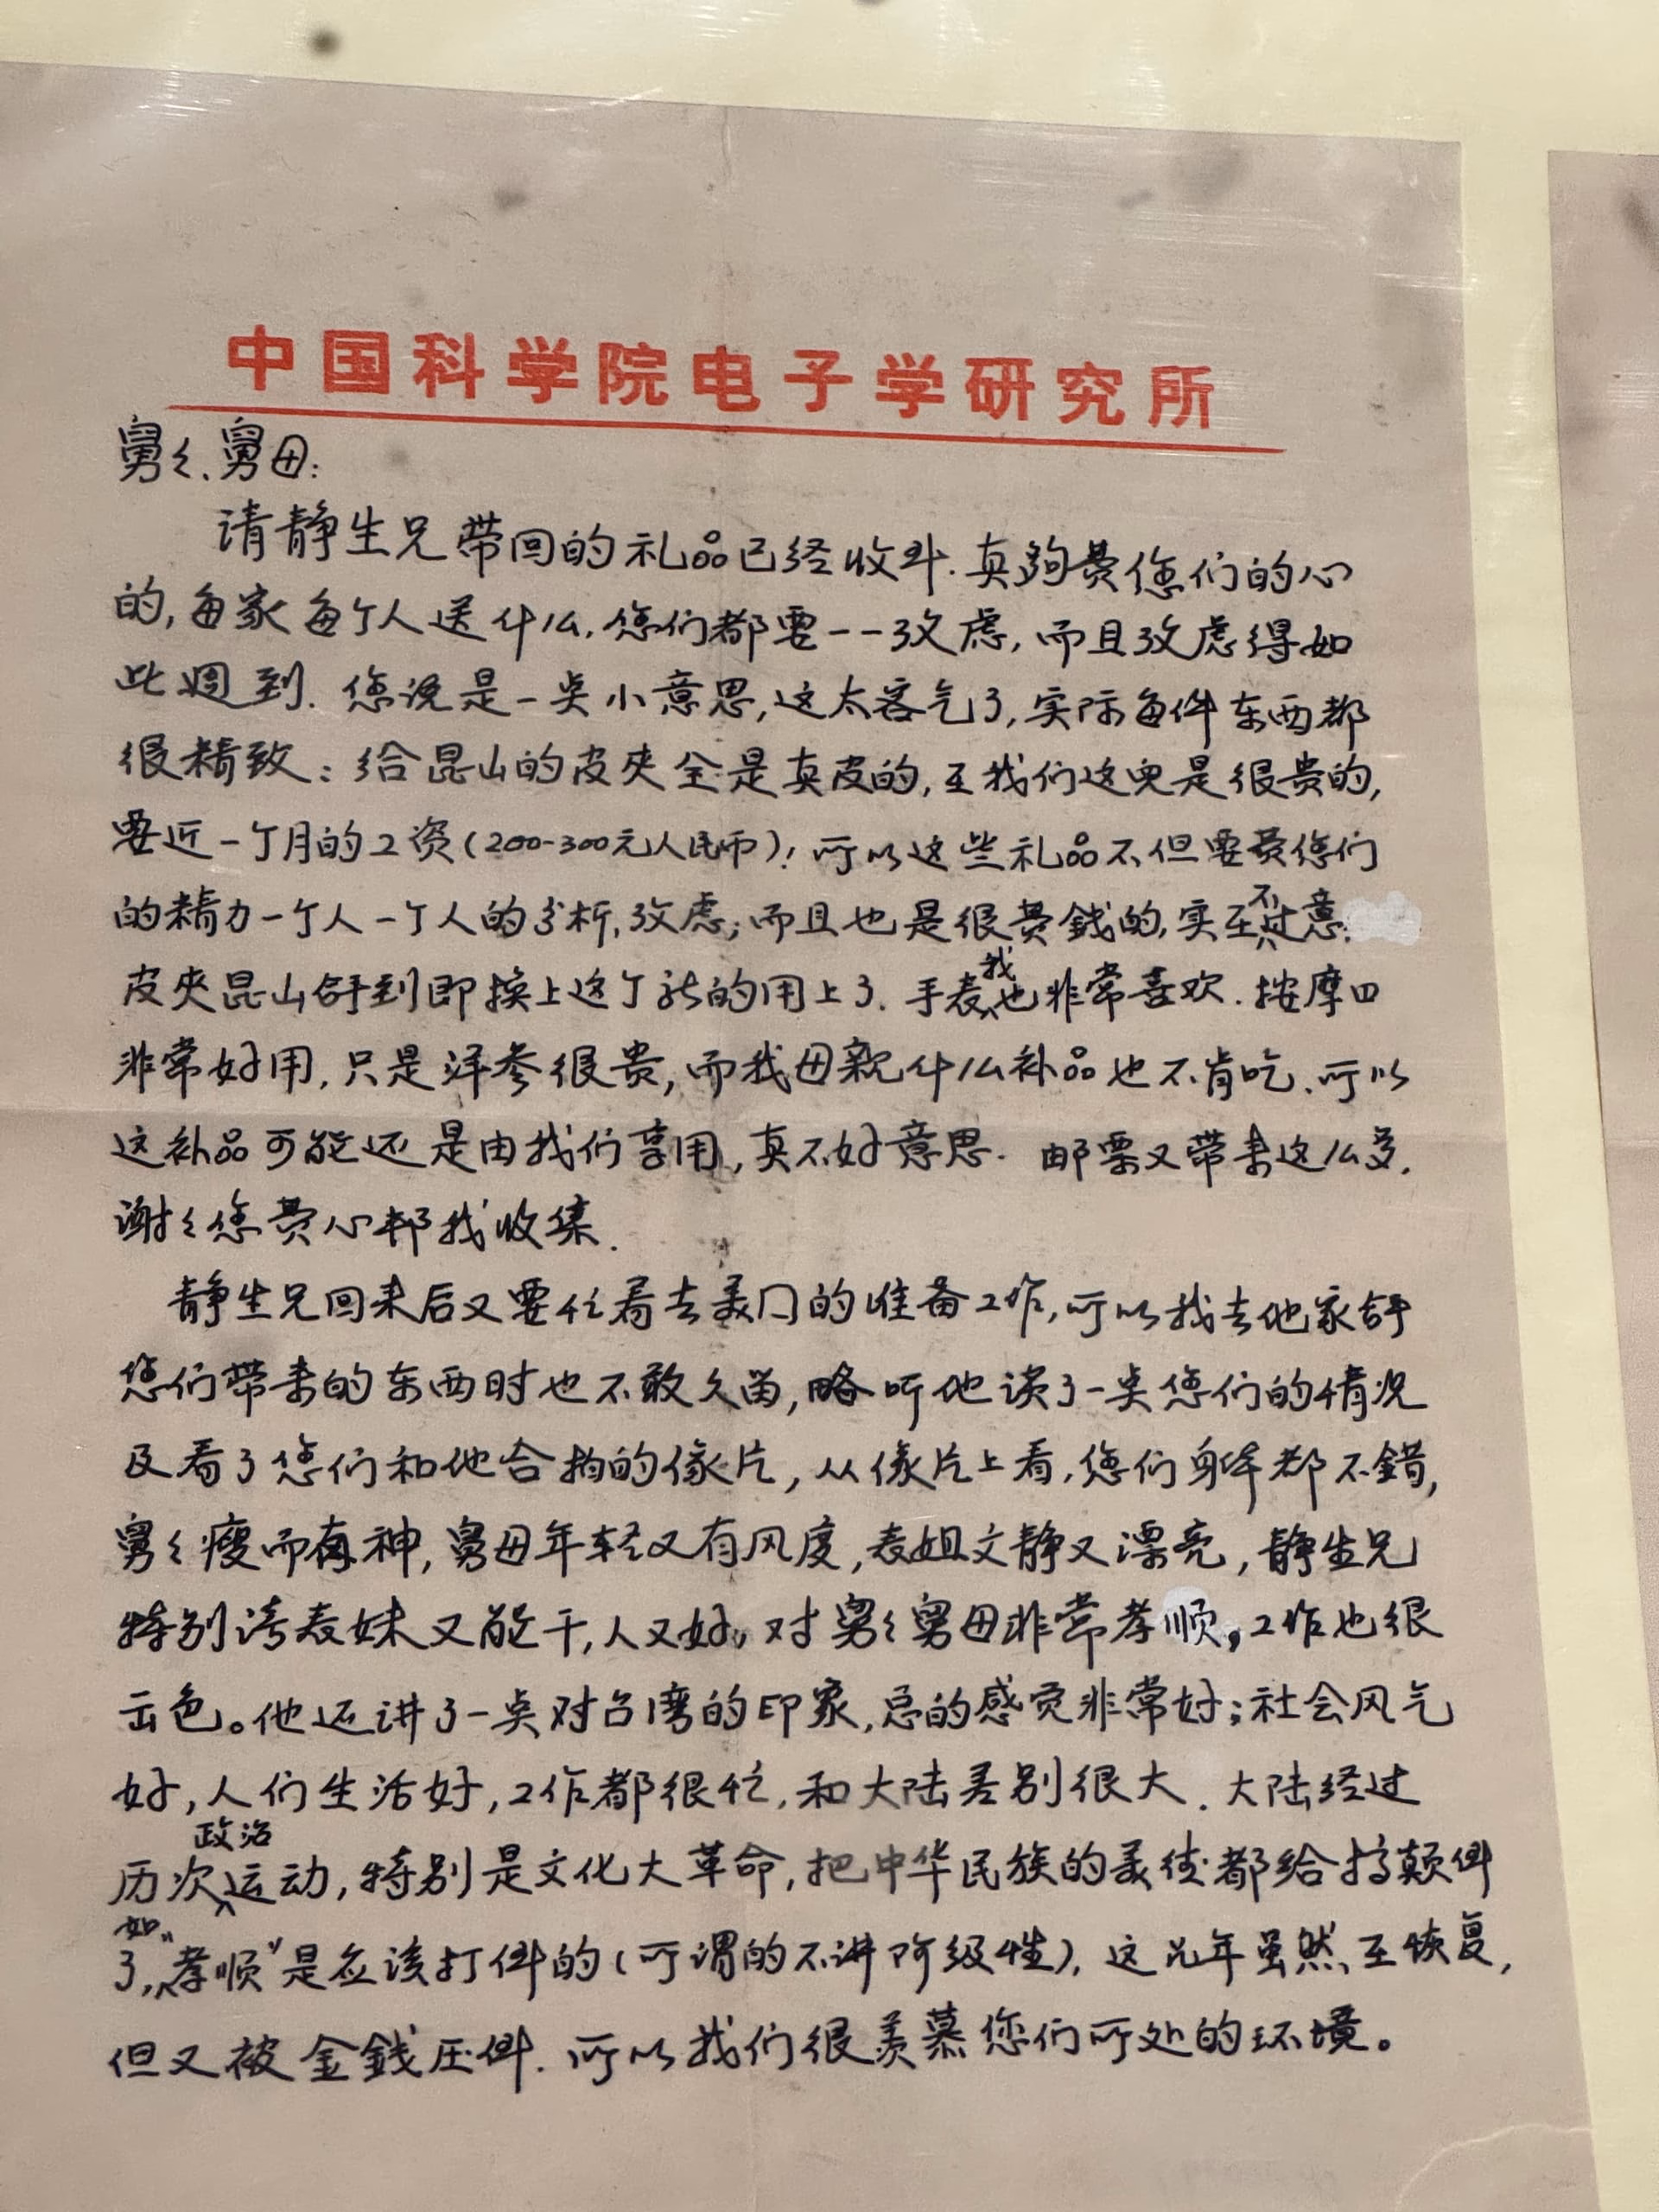 中国科学院电子学研究所
舅々、舅母:
请静生兄带回的礼品已经收到.真夠费您们的心
的,每家每个人送什么,您们都要一一攷虑,而且攷虑得如
此週到.您说是一点小意思,这太客气了,实际每件东西都
很精致:给昆山的皮夹全是真皮的,在我们这儿是很贵的,
要近一个月的工资(200-300元人民币)!所以这些礼品不但要费您们
的精力一个人一个人的分析,攷虑;而且也是很费錢的,实在不过意.
皮夹昆山拿到即换上这个新的用上了.手表我也非常喜欢.按摩口
非常好用,只是洋参很贵,而我母親什么补品也不肯吃.所以
这补品可能还是由我们享用,真不好意思.邮票又带来这么多,
谢々您费心帮我收集.
静生兄回来后又要忙着去美门的准备工作,所以我去他家拿
您们带来的东西时也不敢久留,略听他谈了一点您们的情况
及看了您们和他合拍的像片,从像片上看,您们身体都不错,
舅々瘦而有神,舅母年轻又有风度,表姐文静又漂亮,静生兄
特别夸表妹又能干,人又好,对舅々舅母非常孝顺,工作也很
出色。他还讲了一点对台湾的印象,总的感觉非常好;社会风气
好,人们生活好,工作都很忙,和大陆差别很大.大陆经过
历次政治运动,特别是文化大革命,把中华民族的美德都给搞颠倒
了,如“孝顺”是应该打倒的(所谓的不讲阶级性),这几年虽然在恢复,
但又被金錢压倒.所以我们很羡慕您们所处的环境。